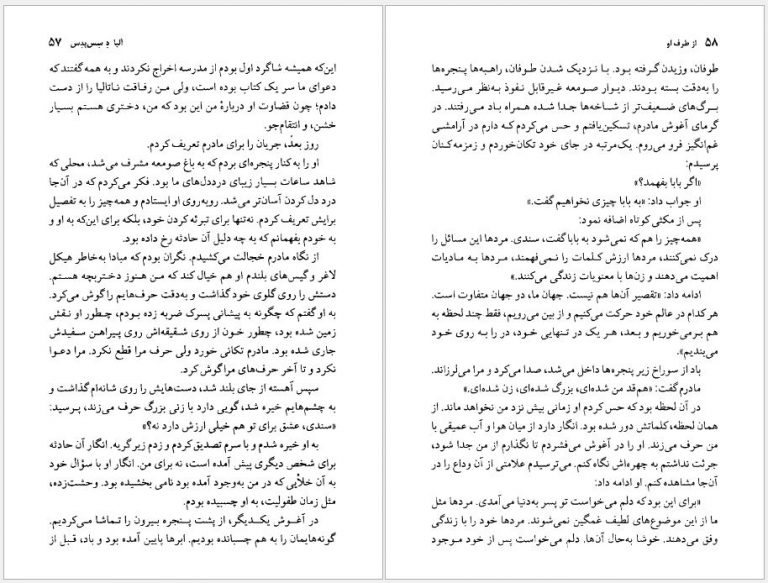 ۵۷ آلبا دِ سس‌پدس
این‌که همیشه شاگرد اول بودم از مدرسه اخراج نکردند و به همه گفتند که
دعوای ما سر یک کتاب بوده است، ولی من رفاقت ناتالیا را از دست
دادم؛ چون قضاوت او دربارهٔ من این بوده که من، دختری هستم بسیار
خشن، و انتقام‌جو.
روز بعد، جریان را برای مادرم تعریف کردم.
او را به کنار پنجره‌ای بردم که به باغ صومعه مشرف می‌شد، محلی که
شاهد ساعات بسیار زیبای درددل‌های ما بود. فکر می‌کردم که در آن‌جا
درد دل کردن آسان‌تر می‌شد. روبه‌روی او ایستادم و همه‌چیز را به تفصیل
برایش تعریف کردم. نه‌تنها برای تبرئه کردن خود، بلکه برای این‌که به او و
به خودم بفهمانم که به چه دلیل آن حادثه رخ داده بود.
از نگاه مادرم خجالت می‌کشیدم. نگران بودم که مبادا به‌خاطر هیکل
لاغر و گیس‌های بلندم او هم خیال کند که من هنوز دختربچه هستم.
دستش را روی گلوی خود گذاشت و به‌دقت حرف‌هایم را گوش می‌کرد.
به او گفتم که چگونه به پیشانی پسرک ضربه زده بودم، چطور او نقش
زمین شده بود، چطور خون از روی شقیقه‌اش روی پیراهن سفیدش
جاری شده بود. مادرم تکانی خورد ولی حرف مرا قطع نکرد. مرا دعوا
نکرد و تا آخر حرف‌های مرا گوش کرد.
سپس آهسته از جای بلند شد، دست‌هایش را روی شانه‌ام گذاشت و
به چشم‌هایم خیره شد، گویی دارد با زنی بزرگ حرف می‌زند، پرسید:
«سندی، عشق برای تو هم خیلی ارزش دارد نه؟»
به او خیره شدم و با سرم تصدیق کردم و زدم زیر گریه. انگار آن حادثه
برای شخص دیگری پیش آمده است، نه برای من. انگار او با سؤال خود
به آن خلأیی که در من به‌وجود آمده بود نامی بخشیده بود. وحشت‌زده،
مثل زمان طفولیت، به او چسبیده بودم.
در آغوش یکدیگر، از پشت پنجره بیرون را تماشا می‌کردیم.
گونه‌هایمان را به هم چسبانده بودیم. ابرها پایین آمده بود و باد، قبل از
۵۸ از طرف او
طوفان، وزیدن گرفته بود. با نزدیک شدن طوفان، راهبه‌ها پنجره‌ها
را به‌دقت بسته بودند. دیوار صومعه غیرقابل نفوذ به‌نظر می‌رسید.
برگ‌های ضعیف‌تر از شاخه‌ها جدا شده همراه باد می‌رفتند. در
گرمای آغوش مادرم، تسکین یافتم و حس می‌کردم که دارم در آرامشی
غم‌انگیز فرو می‌روم. یک‌مرتبه در جای خود تکان خوردم و زمزمه‌کنان
پرسیدم:
«اگر بابا بفهمد؟»
او جواب داد: «به بابا چیزی نخواهیم گفت.»
پس از مکثی کوتاه اضافه نمود:
«همه‌چیز را هم که نمی‌شود به بابا گفت، سندی. مردها این مسائل را
درک نمی‌کنند، مردها ارزش کلمات را نمی‌فهمند، مردها به مادیات
اهمیت می‌دهند و زن‌ها با معنویات زندگی می‌کنند.»
ادامه داد: «تقصیر آن‌ها هم نیست. جهان ما، دو جهان متفاوت است.
هر کدام در عالم خود حرکت می‌کنیم و از بین می‌رویم، فقط چند لحظه به
هم برمی‌خوریم و بعد، هر یک در تنهایی خود، در را به روی خود
می‌بندیم».
باد از سوراخ زیر پنجره‌ها داخل می‌شد، صدا می‌کرد و مرا می‌لرزاند.
مادرم گفت: «هم‌قد من شده‌ای، بزرگ شده‌ای، زن شده‌ای.»
در آن لحظه بود که حس کردم او زمانی بیش نزد من نخواهد ماند. از
همان لحظه، کلماتش دور شده بود. انگار دارد از میان هوا و آب عمیقی با
من حرف می‌زند. او را در آغوش می‌فشردم تا نگذارم از من جدا شود،
جرئت نداشتم به چهره‌اش نگاه کنم. می‌ترسیدم علامتی از آن وداع را در
آن‌جا مشاهده کنم. او ادامه داد:
«برای این بود که دلم می‌خواست تو پسر به‌دنیا می‌آمدی. مردها مثل
ما از این موضوع‌های لطیف غمگین نمی‌شوند. مردها خود را با زندگی
وفق می‌دهند. خوشا به‌حال آن‌ها. دلم می‌خواست پس از خود موجود